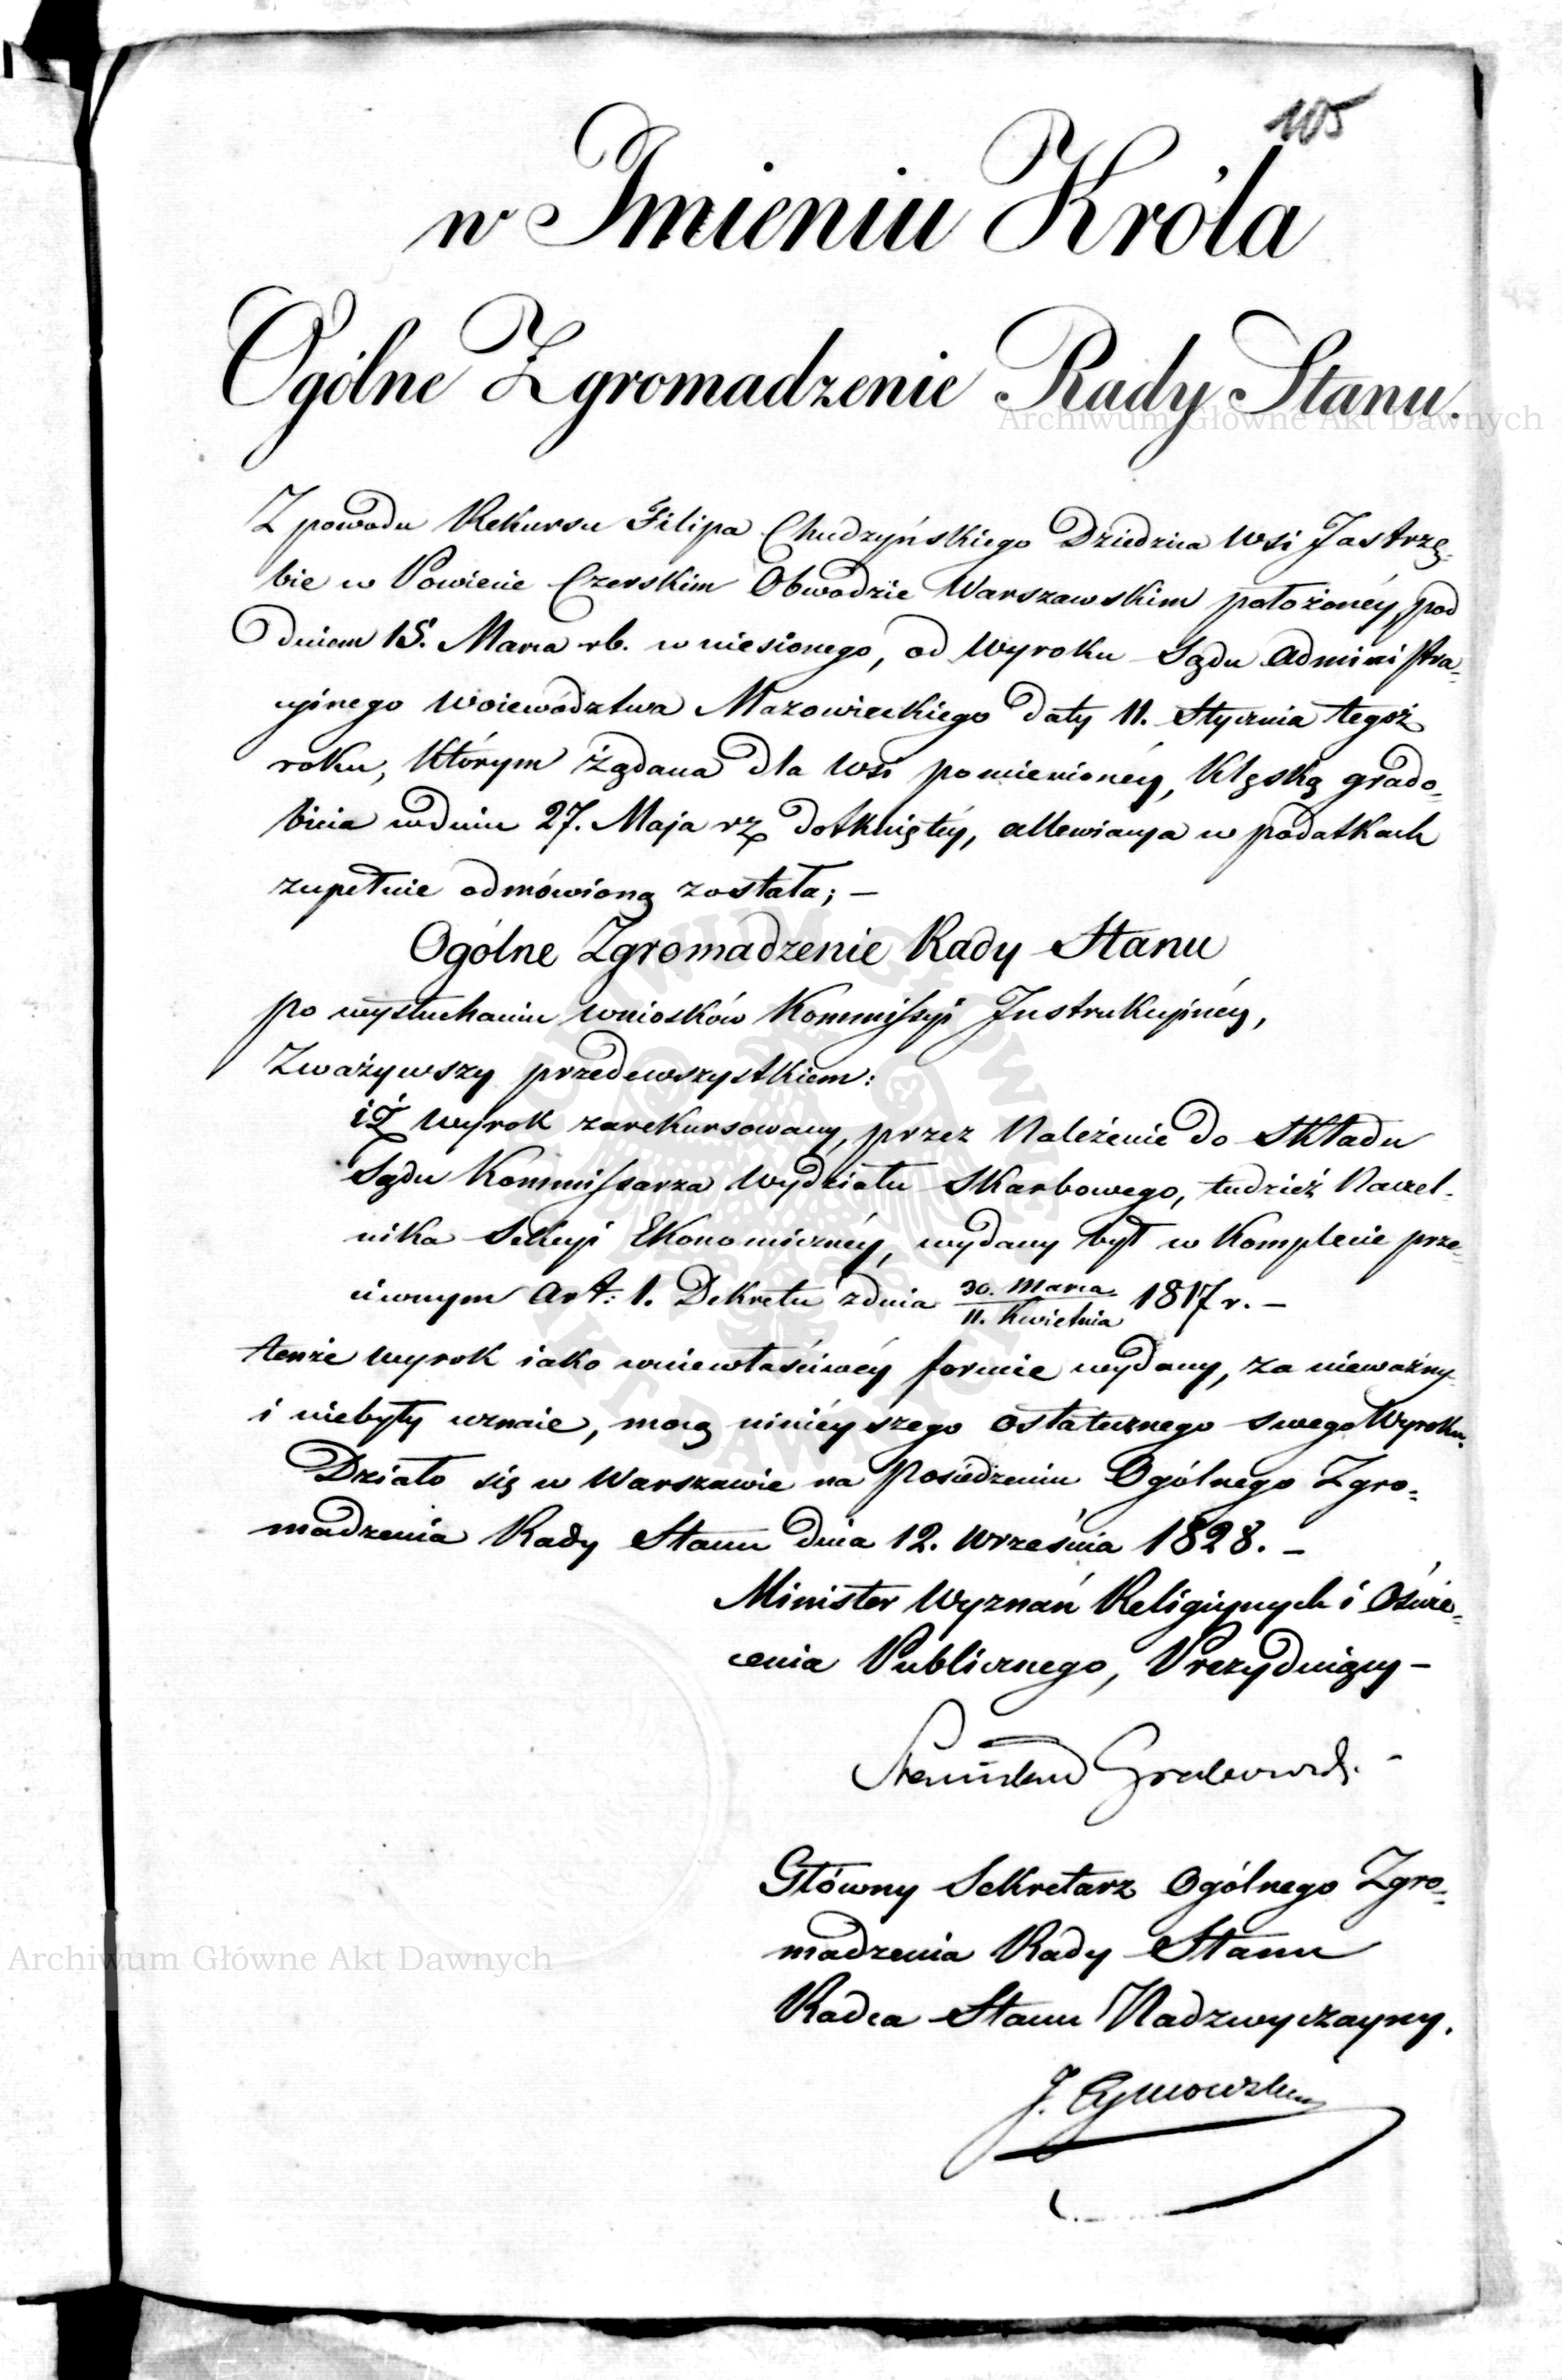 105
w Imieniu Króla
Ogólne Zgromadzenie Rady Stanu.
Archiwum Główne Akt Dawnych
Z powodu Rekursu Filipa Chudzyńskiego Dziedzica Wsi Jastrzę-
bie w Powiecie Czerskim Obwodzie Warszawskim położonéy, pod
Dniem 15. Marca rb. wniesionego, od Wyroku Sądu Administra-
cyinego Woiewództwa Mazowieckiego daty 11. Stycznia tegoż
roku, którym żądana dla Wsi pomienionéy, klęską grado-
bicia w dniu 27. Maja rz dotkniętéy, allewiacya w podatkach
zupełnie odmówioną została; —
Ogólne Zgromadzenie Rady Stanu
po wysłuchaniu wniosków Kommissyi Instrukcyinéy,
Zważywszy przedewszystkiem:
iż Wyrok zarekursowany, przez Należenie do Składu
Sądu Kommissarza Wydziału Skarbowego, tudzież Naczel-
nika Sekcyi Ekonomicznéy, wydany był w Komplecie prze-
ciwnym Art: 1. Dekretu z dnia 30. Marca / 11. Kwietnia 1817 r. —
tenże Wyrok iako w niewłaściwéy formie wydany, za nieważny
i niebyły uznaie, mocą ninieyszego ostatecznego swego Wyroku.
Działo się w Warszawie na Posiedzeniu Ogólnego Zgro-
madzenia Rady Stanu dnia 12. Września 1828. —
Minister Wyznań Religiynych i Oświe-
cenia Publicznego, Prezyduiący —
Stanisław Grabowski.
Główny Sekretarz Ogólnego Zgro-
madzenia Rady Stanu
Archiwum Główne Akt Dawnych
Radca Stanu Nadzwyczayny.
J. Tymowski
ARCHIWUM GŁÓWNE
AKT DAWNYCH